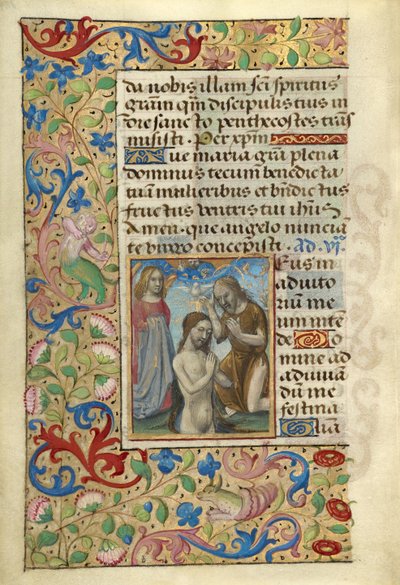 da nobis illam sc̄i spiritus
gr̄am qm̄ discipulis tuis in
die sancto penthecostes trās
misisti . Per xp̄m
Aue maria gr̄a plena
dominus tecum benedicta
tu in mulieribus et bn̄dictus
fructus ventris tui ih̄us
Amen . que angelo nuncia
te verbo concepisti . Ad vj.
Deus in
adiuto
rium me
um intē
de Do
mine ad
adiuuā
dum me
festina
Gl̄ia